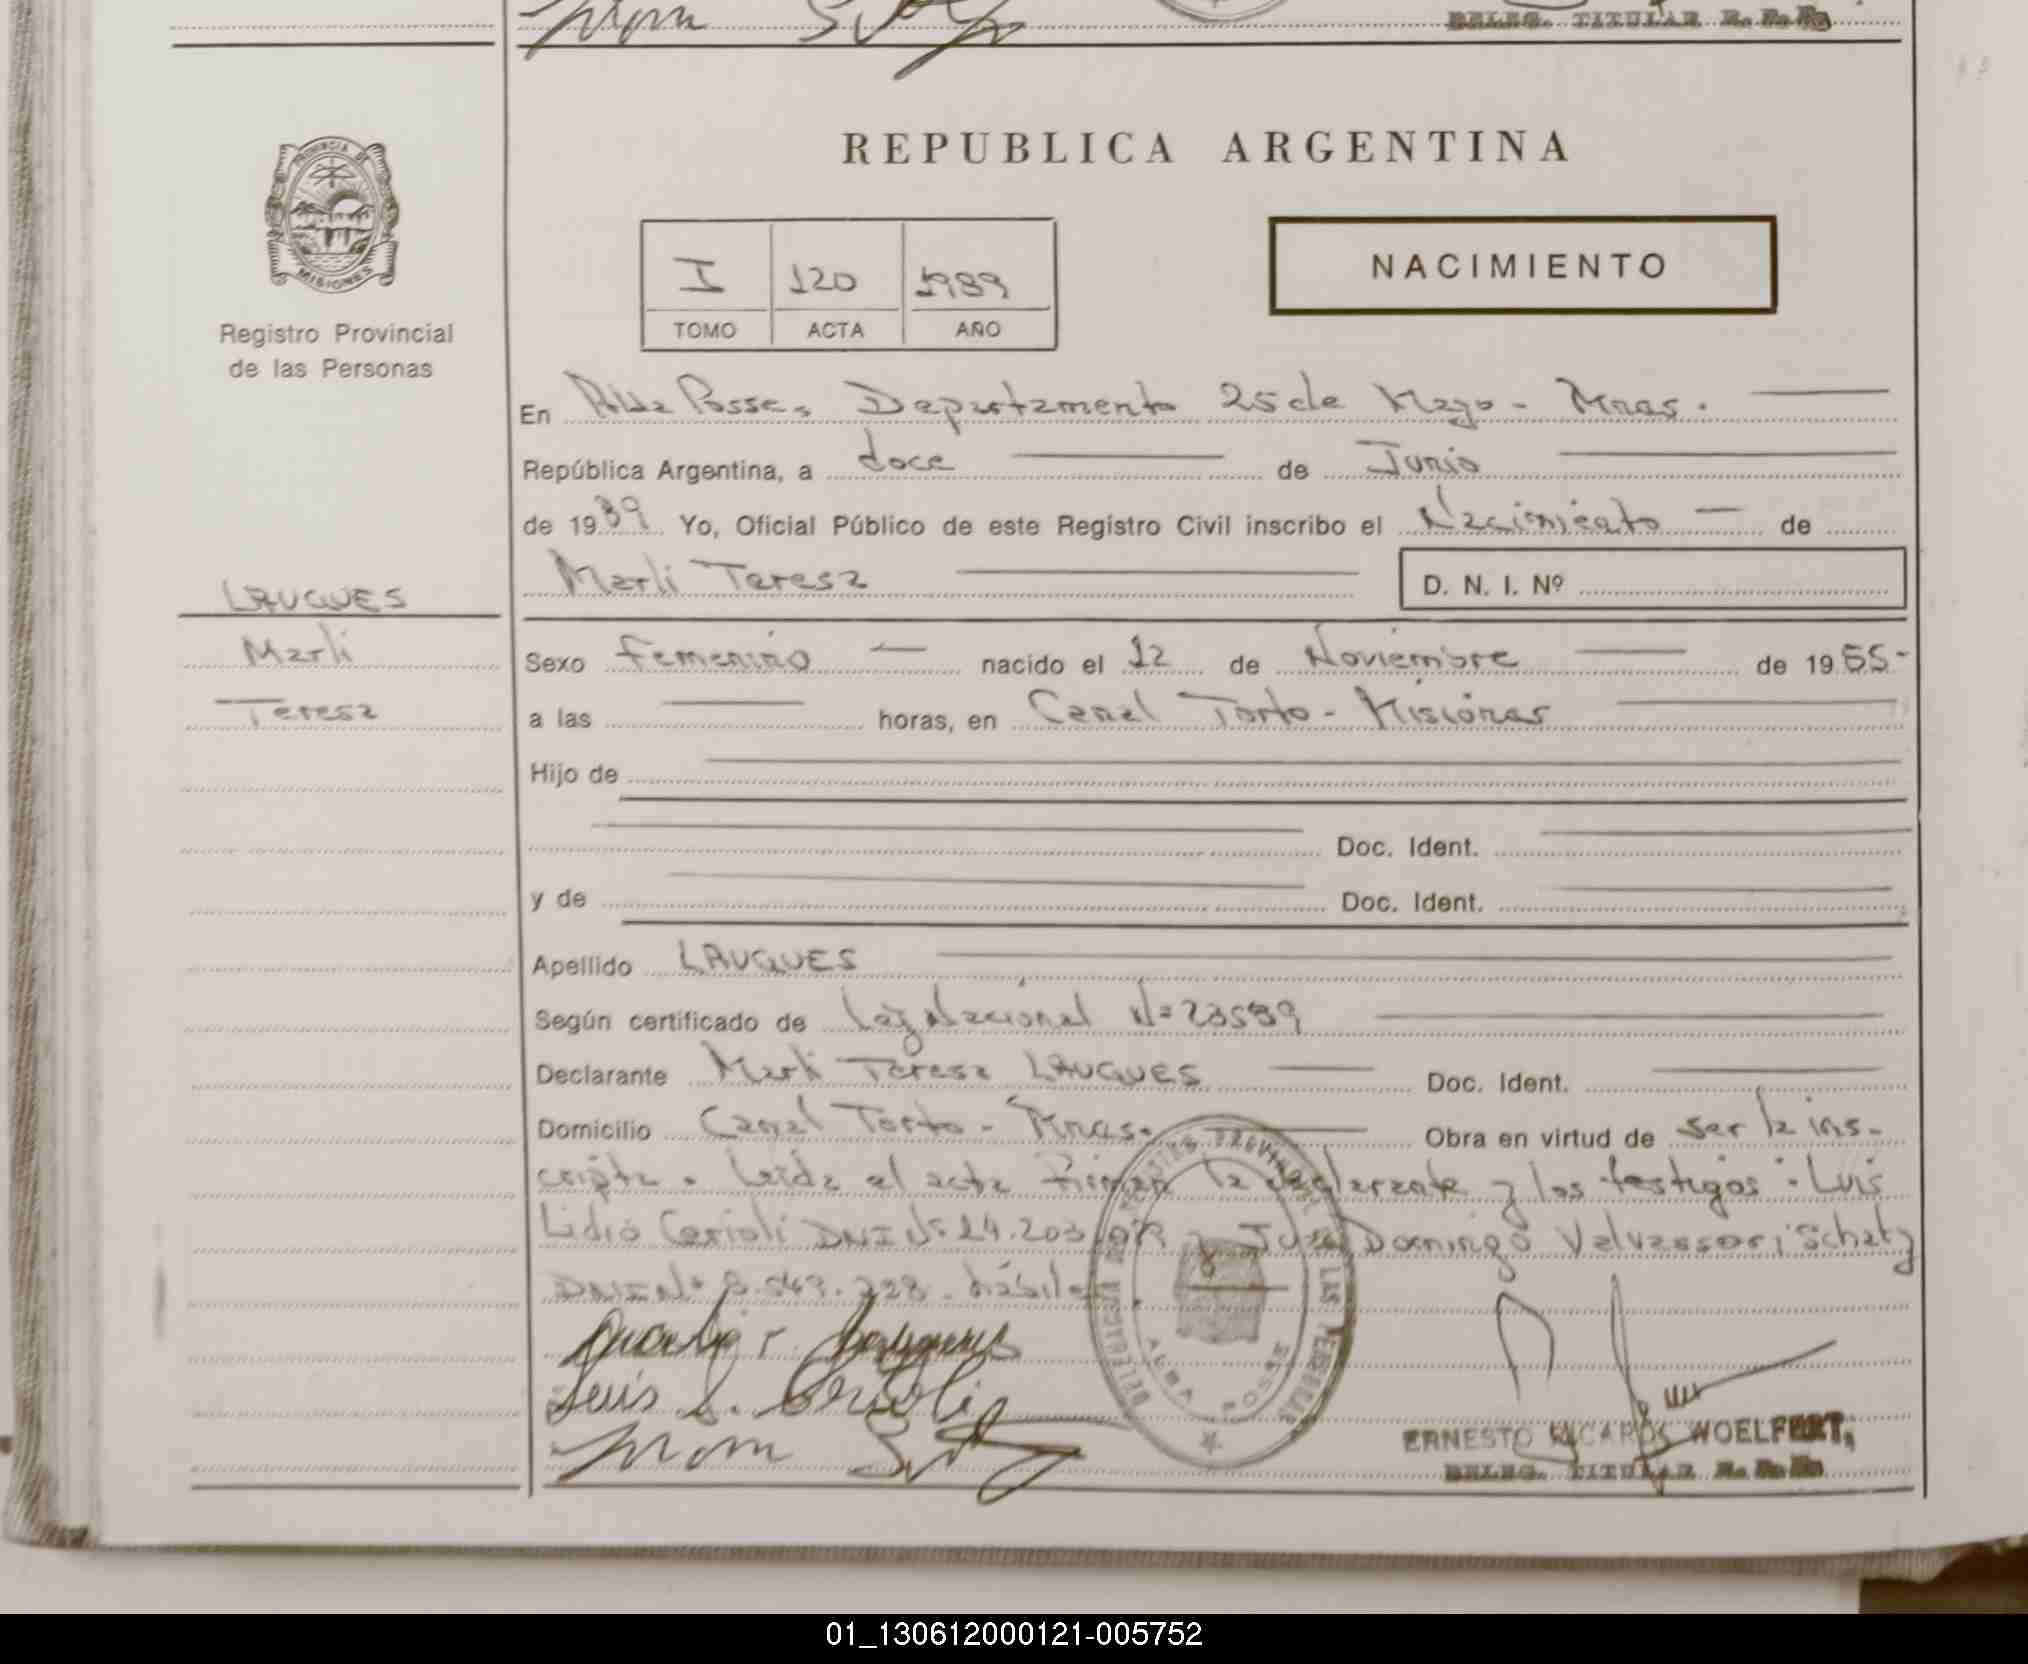 DELEG. TITULAR R. P. P.
REPUBLICA ARGENTINA
PROVINCIA DE
MISIONES
I 120 1989
TOMO ACTA AÑO
NACIMIENTO
Registro Provincial
de las Personas
En Alba Posse, Departamento 25 de Mayo - Mnas.
República Argentina, a doce de Junio
de 1989 Yo, Oficial Público de este Registro Civil inscribo el Nacimiento de
Marli Teresa D. N. I. Nº
LAUQUES
Marli
Teresa
Sexo Femenino nacido el 12 de Noviembre de 1965-
a las horas, en Canal Torto - Misiones
Hijo de
Doc. Ident.
y de Doc. Ident.
Apellido LAUQUES
Según certificado de Ley Nacional Nº 23589
Declarante Marli Teresa LAUQUES Doc. Ident.
Domicilio Canal Torto - Mnas. Obra en virtud de ser la ins-
cripta. Leída el acta Firman la declarante y los testigos: Luis
Lidio Carioli DNI Nº 14.203 y Juan Domingo Valvassori Schatz
DNI Nº 8.549.728. hábiles.
DELEGACION DE REGISTRO PROVINCIAL DE LAS PERSONAS
ALBA POSSE
Luis L. Carioli
ERNESTO RICARDO WOELFERT
DELEG. TITULAR R. P. P.
01_130612000121-005752